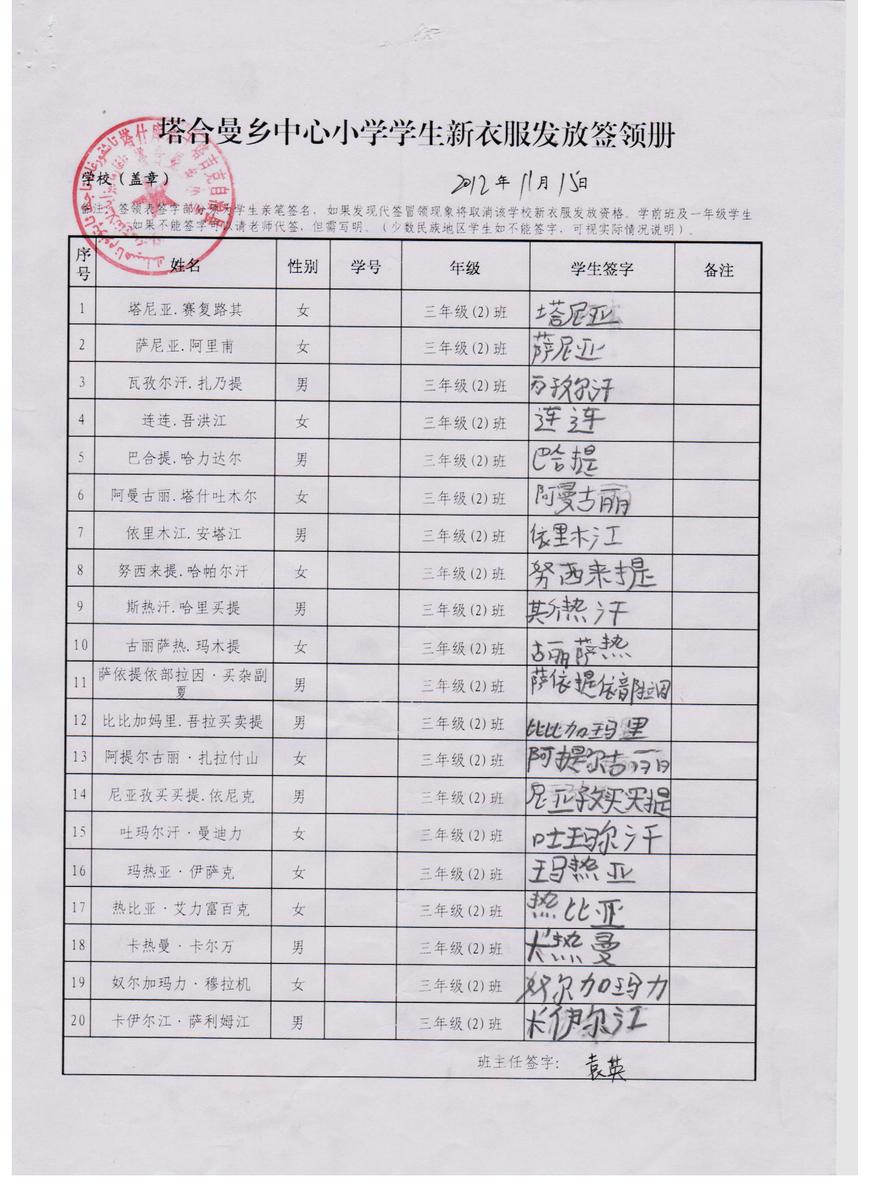 塔合曼乡中心小学学生新衣服发放签领册
学校（盖章） 2012年11月15日
备注：签领表签字部分须为学生亲笔签名，如果发现代签冒领现象将取消该学校新衣服发放资格。学前班及一年级学生
如果不能签字可以请老师代签，但需写明。（少数民族地区学生如不能签字，可视实际情况说明）。
序号 姓名 性别 学号 年级 学生签字 备注
1 塔尼亚.赛复路其 女 三年级(2)班 塔尼亚
2 萨尼亚.阿里甫 女 三年级(2)班 萨尼亚
3 瓦孜尔汗.扎乃提 男 三年级(2)班 瓦孜尔汗
4 连连.吾洪江 女 三年级(2)班 连连
5 巴合提.哈力达尔 男 三年级(2)班 巴合提
6 阿曼古丽.塔什吐木尔 女 三年级(2)班 阿曼古丽
7 依里木江.安塔江 男 三年级(2)班 依里木江
8 努西来提.哈帕尔汗 女 三年级(2)班 努西来提
9 斯热汗.哈里买提 男 三年级(2)班 斯热汗
10 古丽萨热.玛木提 女 三年级(2)班 古丽萨热
11 萨依提依部拉因·买杂副夏 男 三年级(2)班 萨依提依部拉因
12 比比加妈里.吾拉买卖提 男 三年级(2)班 比比加玛里
13 阿提尔古丽·扎拉付山 女 三年级(2)班 阿提尔古丽
14 尼亚孜买买提.依尼克 男 三年级(2)班 尼亚孜买买提
15 吐玛尔汗·曼迪力 女 三年级(2)班 吐玛尔汗
16 玛热亚·伊萨克 女 三年级(2)班 玛热亚
17 热比亚·艾力富百克 女 三年级(2)班 热比亚
18 卡热曼·卡尔万 男 三年级(2)班 卡热曼
19 奴尔加玛力·穆拉机 女 三年级(2)班 奴尔加玛力
20 卡伊尔江·萨利姆江 男 三年级(2)班 卡伊尔江
班主任签字： 袁英